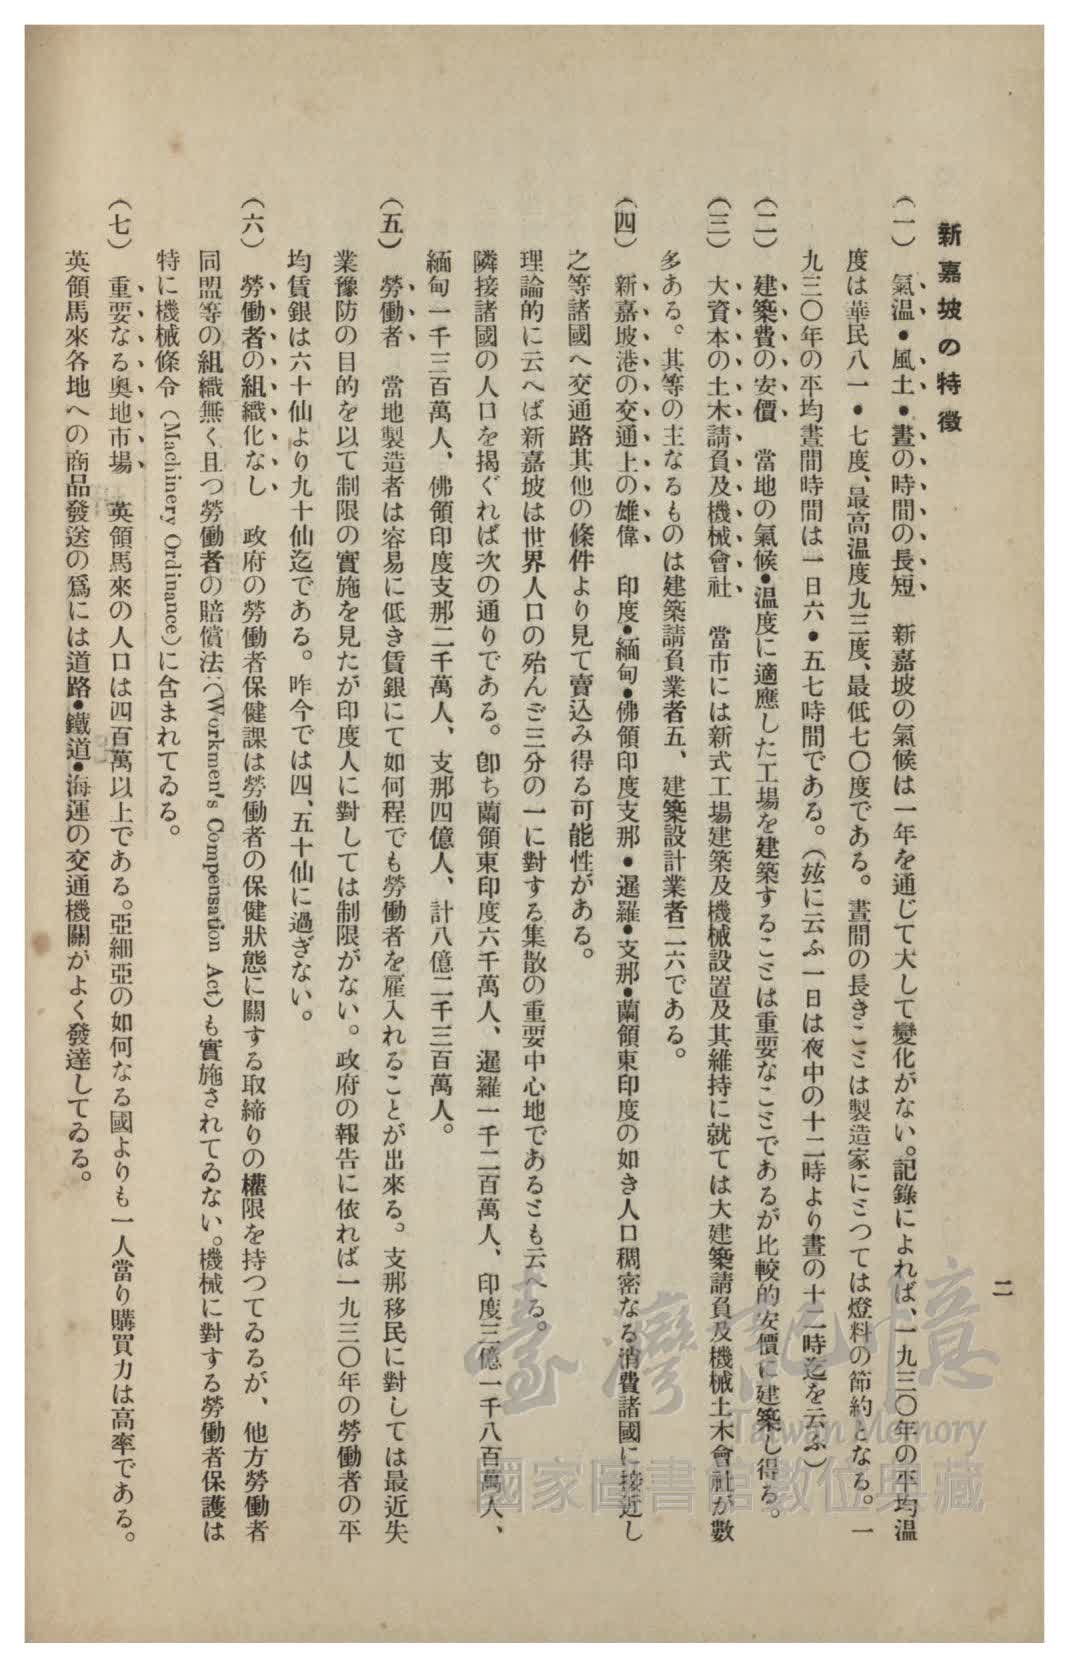 二
新嘉坡の特徵
(一) 氣溫・風土・晝の時間の長短 新嘉坡の氣候は一年を通じて大して變化がない。記錄によれば、一九三〇年の平均溫
度は華民八一・七度、最高溫度九三度、最低七〇度である。晝間の長きことは製造家にとつては燈料の節約となる。一
九三〇年の平均晝間時間は一日六・五七時間である。(玆に云ふ一日は夜中の十二時より晝の十二時迄を云ふ)
(二) 建築費の安價 當地の氣候・溫度に適應した工場を建築することは重要なことであるが比較的安價に建築し得る。
(三) 大資本の土木請負及機械會社 當市には新式工場建築及機械設置及其維持に就ては大建築請負及機械土木會社が數
多ある。其等の主なるものは建築請負業者五、建築設計業者二六である。
(四) 新嘉坡港の交通上の雄偉 印度・緬甸・佛領印度支那・暹羅・支那・蘭領東印度の如き人口稠密なる消費諸國に接近し
之等諸國へ交通路其他の條件より見て賣込み得る可能性がある。
理論的に云へば新嘉坡は世界人口の殆んど三分の一に對する集散の重要中心地であるとも云へる。
隣接諸國の人口を揭ぐれば次の通りである。卽ち蘭領東印度六千萬人、暹羅一千二百萬人、印度三億一千八百萬人、
緬甸一千三百萬人、佛領印度支那二千萬人、支那四億人、計八億二千三百萬人。
(五) 勞働者 當地製造者は容易に低き賃銀にて如何程でも勞働者を雇入れることが出來る。支那移民に對しては最近失
業豫防の目的を以て制限の實施を見たが印度人に對しては制限がない。政府の報告に依れば一九三〇年の勞働者の平
均賃銀は六十仙より九十仙迄である。昨今では四、五十仙に過ぎない。
(六) 勞働者の組織化なし 政府の勞働者保健課は勞働者の保健狀態に關する取締りの權限を持つてゐるが、他方勞働者
同盟等の組織無く且つ勞働者の賠償法(Workmen's Compensation Act)も實施されてゐない。機械に對する勞働者保護は
特に機械條令(Machinery Ordinance)に含まれてゐる。
(七) 重要なる奧地市場 英領馬來の人口は四百萬以上である。亞細亞の如何なる國よりも一人當り購買力は高率である。
英領馬來各地への商品發送の爲には道路・鐵道・海運の交通機關がよく發達してゐる。
臺灣記憶
Taiwan Memory
國家圖書館數位典藏